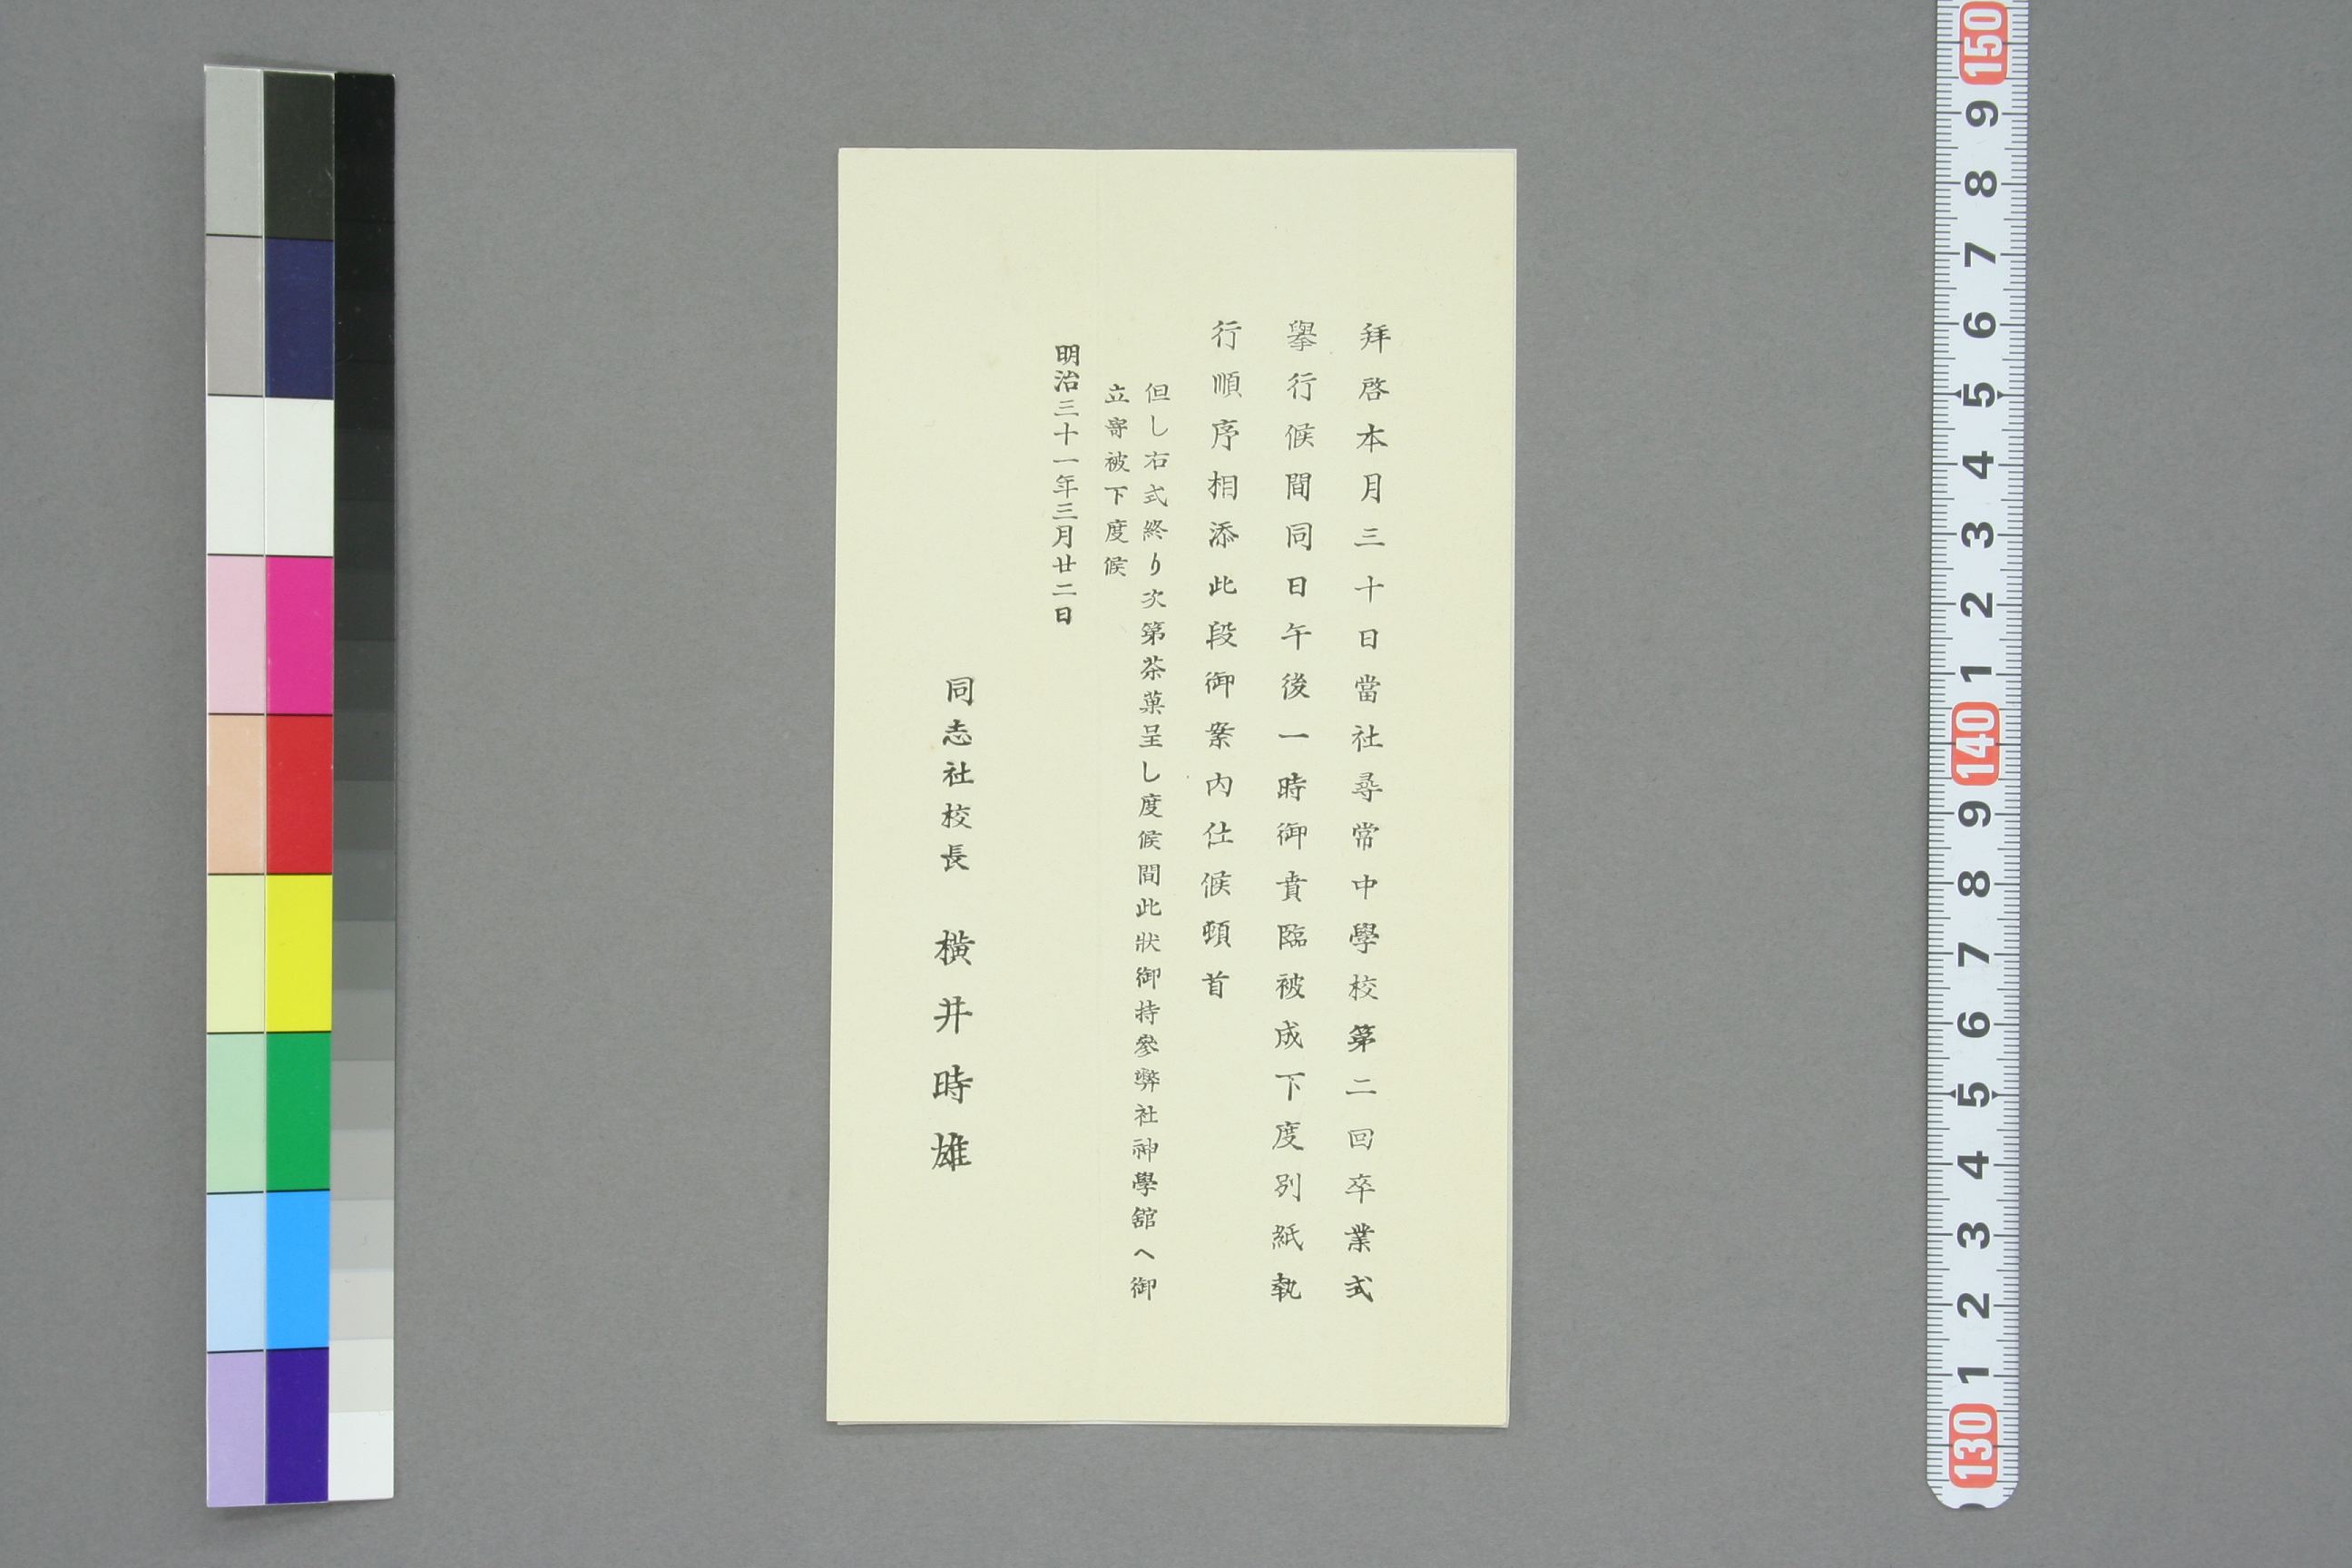 拜啓本月三十日當社尋常中學校第二回卒業式
擧行候間同日午後一時御賁臨被成下度別紙執
行順序相添此段御案内仕候頓首
但し右式終り次第茶菓呈し度候間此狀御持參弊社神學舘へ御
立寄被下度候
明治三十一年三月廿二日
同志社校長 橫井時雄
150
9
8
7
6
5
4
3
2
1
140
9
8
7
6
5
4
3
2
1
130